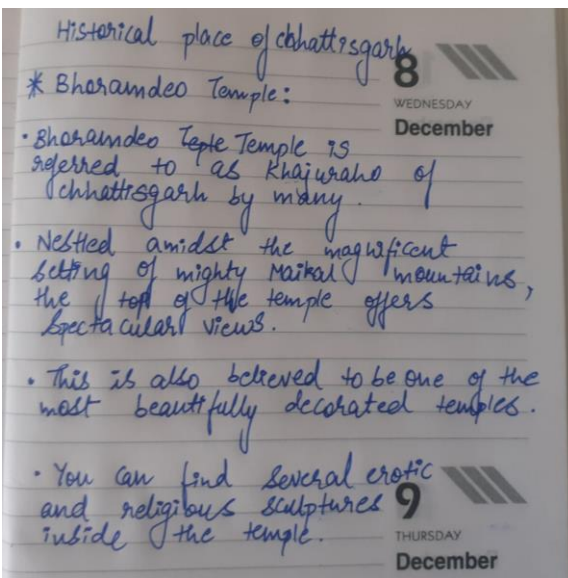 Historical place of chhattisgarh
8
WEDNESDAY
December
* Bhoramdeo Temple:
• Bhoramdeo Temple is
referred to as Khajuraho of
chhattisgarh by many.
• Nestled amidst the magnificent
setting of mighty Maikal mountains,
the top of the temple offers
spectacular views.
• This is also believed to be one of the
most beautifully decorated temples.
• You can find several erotic
and religious sculptures
inside the temple.
9
THURSDAY
December